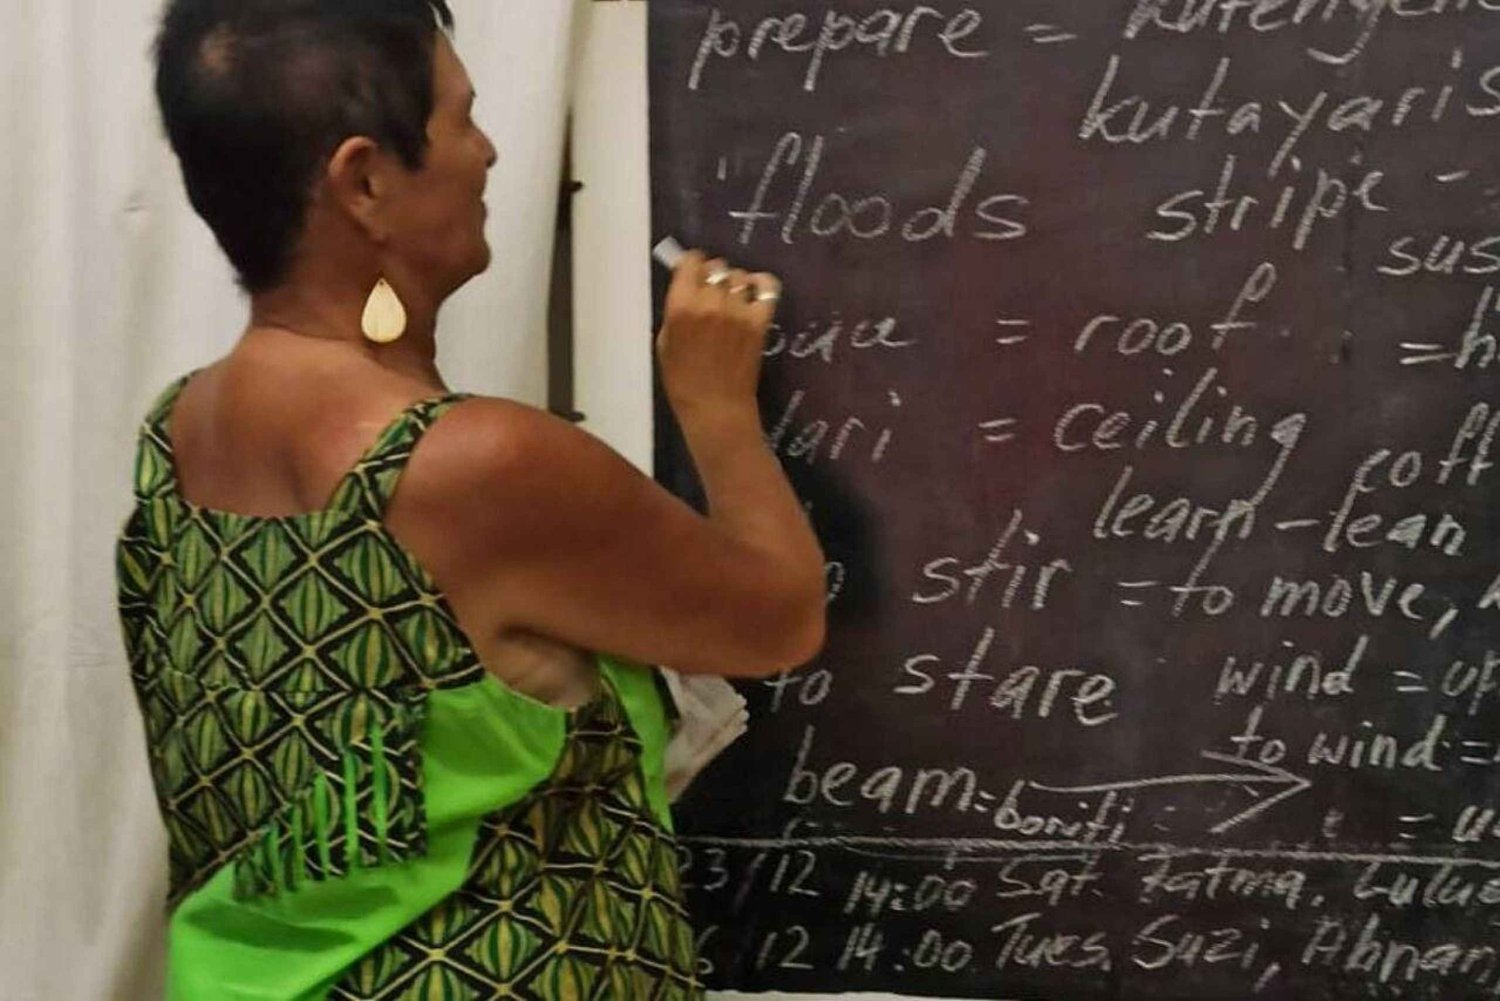 prepare =
kutayaris
"floods stripe -
sus
= roof =
dari = ceiling
learn - lean
stir = to move,
to stare wind = up
to wind =
beam = boriti
23/12 14:00 Sat. Fatma, Lulu
12 14:00 Tues. Suzi,